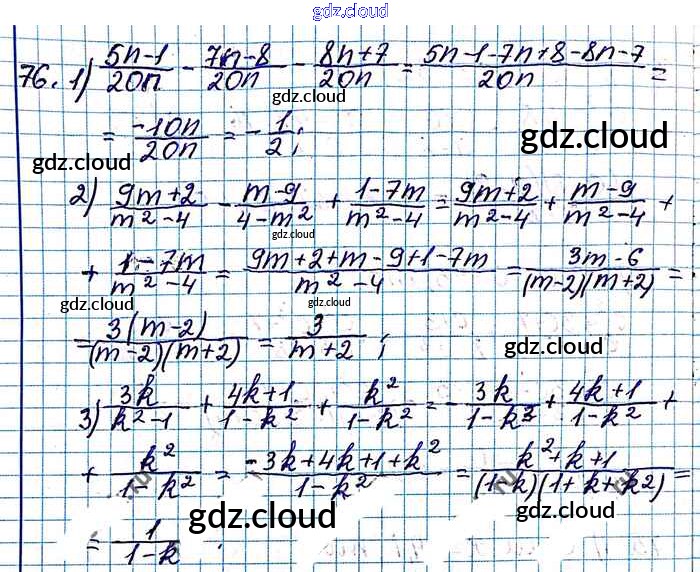 gdz.cloud
76. 1) (5n-1)/(20n) - (7n-8)/(20n) - (8n+7)/(20n) = (5n-1-7n+8-8n-7)/(20n) =
gdz.cloud
= (-10n)/(20n) = -1/2;
gdz.cloud
gdz.cloud
2) (9m+2)/(m²-4) - (m-9)/(4-m²) + (1-7m)/(m²-4) = (9m+2)/(m²-4) + (m-9)/(m²-4) +
gdz.cloud
+ (1-7m)/(m²-4) = (9m+2+m-9+1-7m)/(m²-4) = (3m-6)/((m-2)(m+2)) =
gdz.cloud
gdz.cloud
= 3(m-2)/((m-2)(m+2)) = 3/(m+2);
gdz.cloud
3) 3k/(k²-1) + (4k+1)/(1-k²) + k²/(1-k²) = -3k/(1-k³) + (4k+1)/(1-k²) +
+ k²/(1-k²) = (-3k+4k+1+k²)/(1-k²) = (k²+k+1)/((1-k)(1+k+k²)) =
gdz.cloud
gdz.cloud
= 1/(1-k)